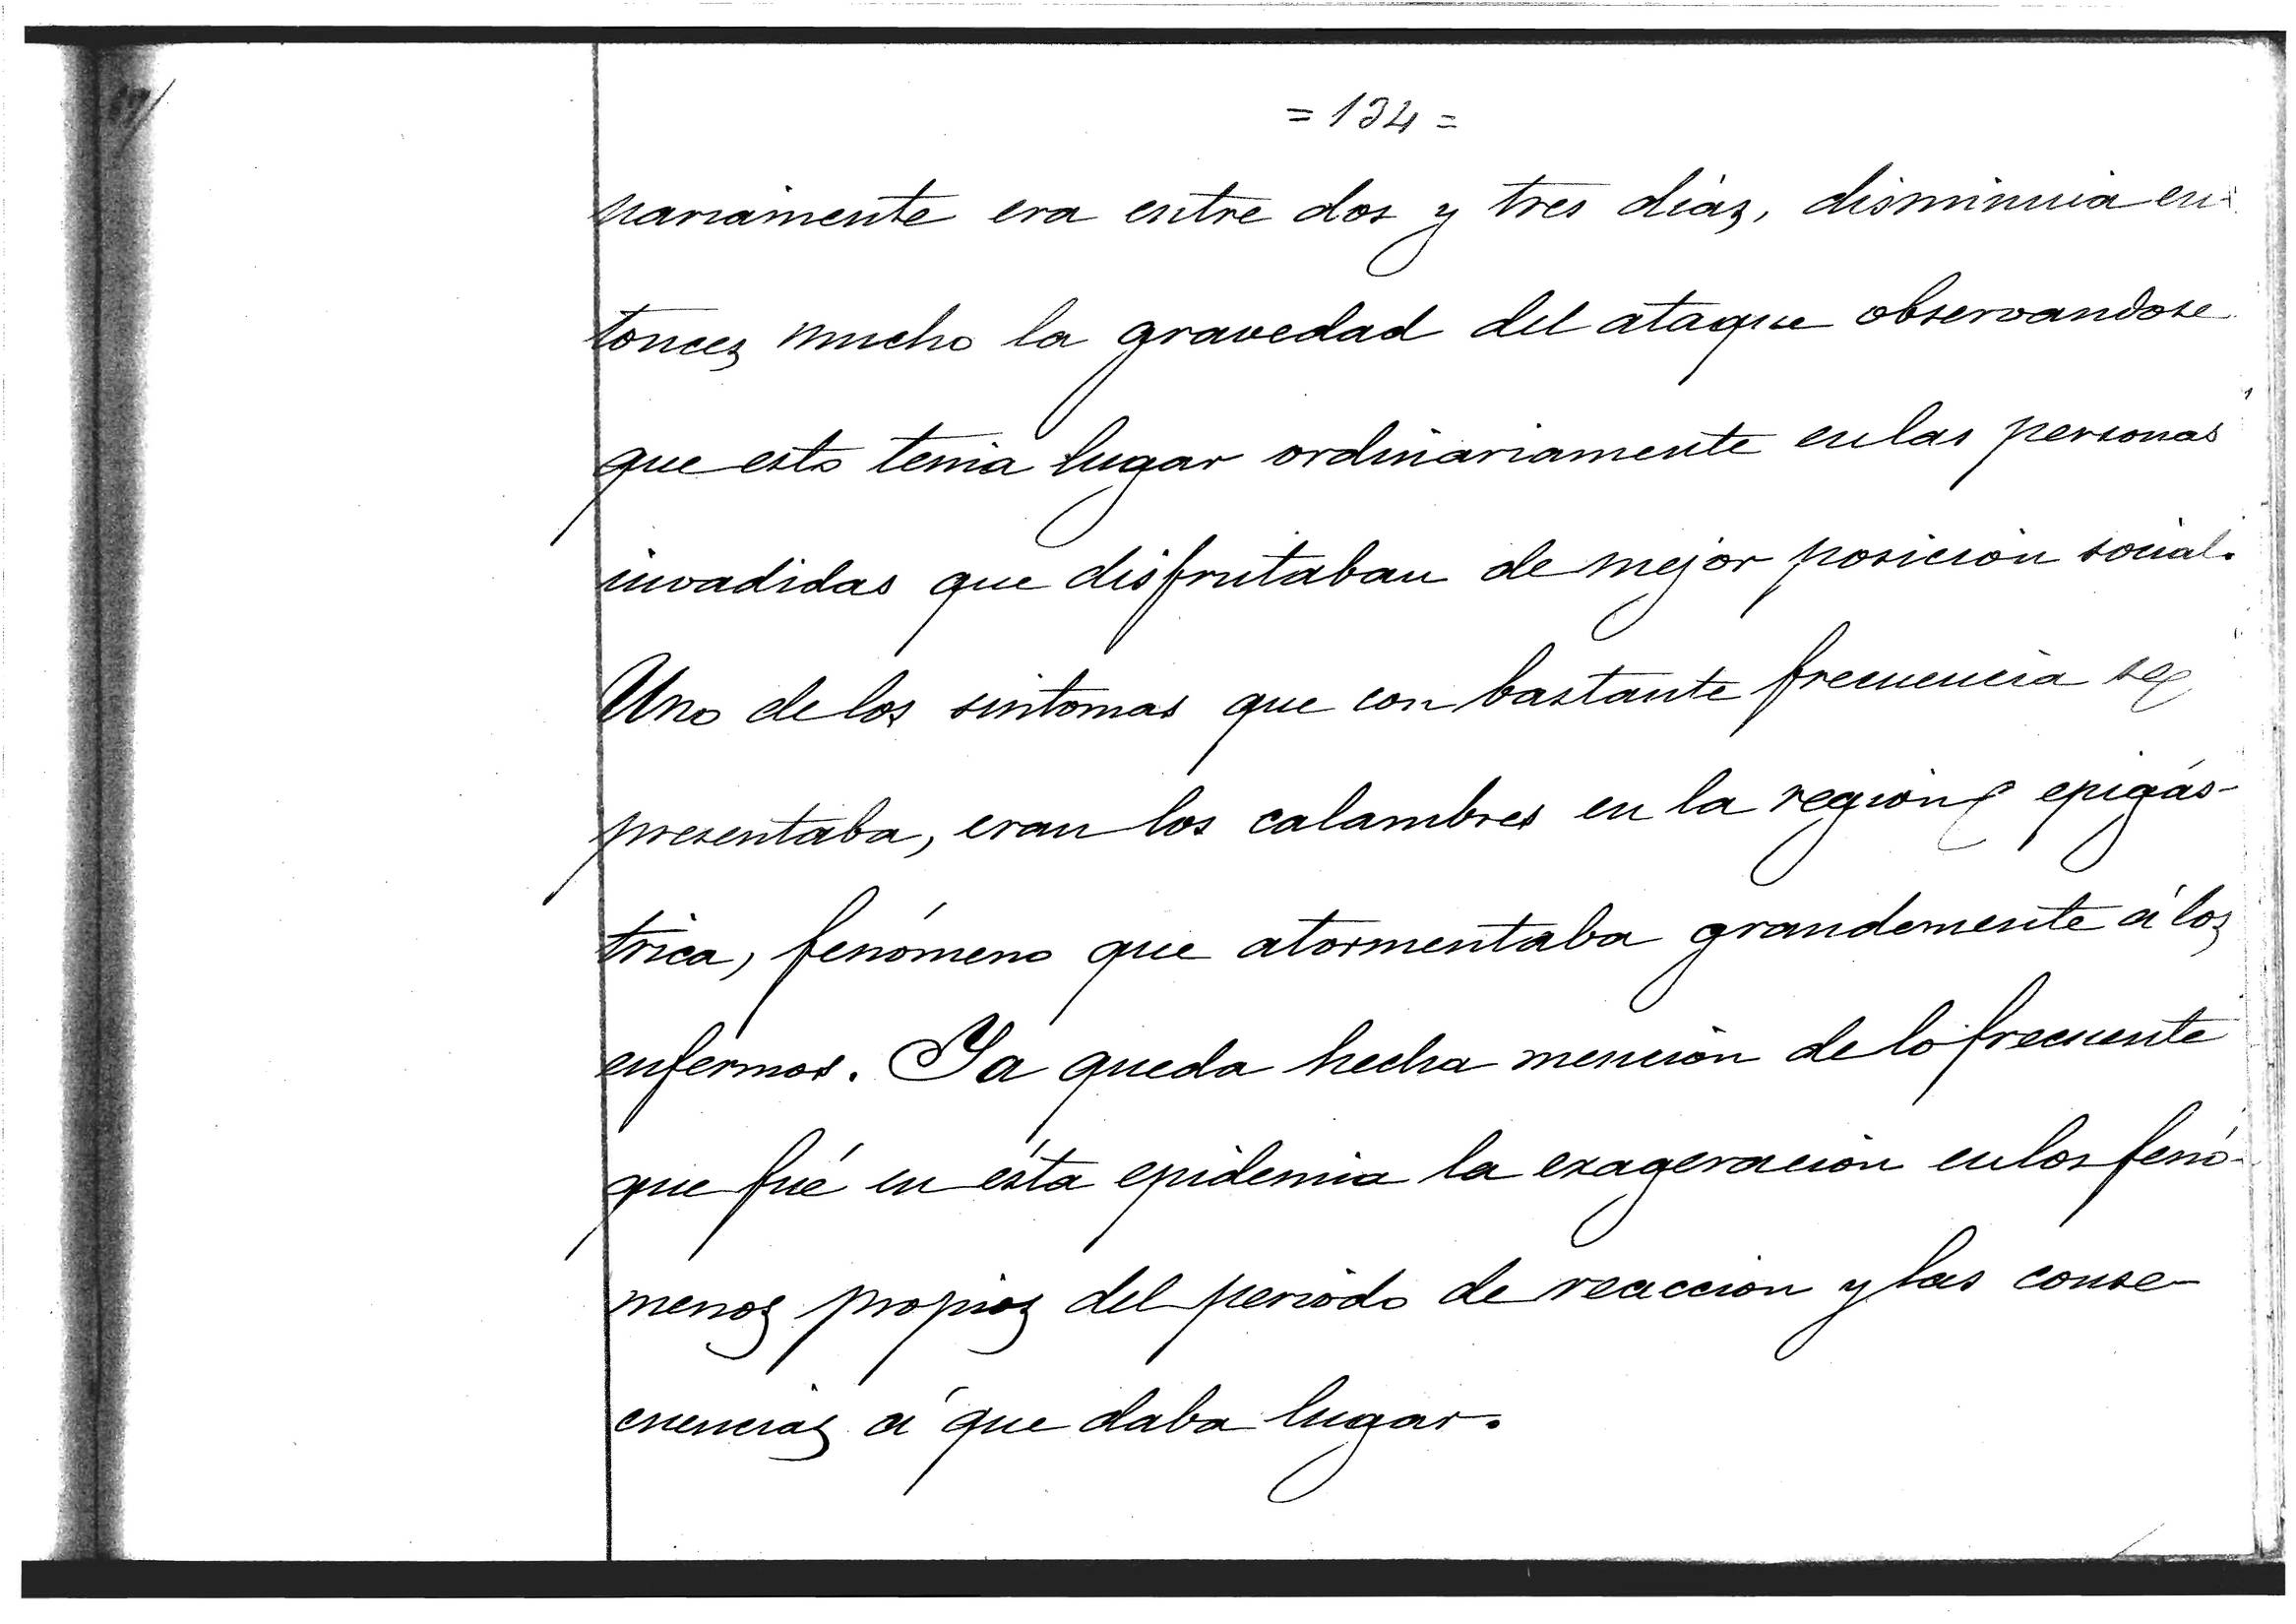 = 134 =
nariamente era entre dos y tres dias, disminuia en-
tonces mucho la gravedad del ataque observandose
que esto tenia lugar ordinariamente en las personas
invadidas que disfrutaban de mejor posición social.
Uno de los sintomas que con bastante frecuencia se
presentaba, eran los calambres en la region epigás-
trica, fenómeno que atormentaba grandemente á los
enfermos. Ya queda hecha mención de lo frecuente
que fué en ésta epidemia la exageración en los fenó-
menos propios del periodo de reaccion y las conse-
cuencias á que daba lugar.